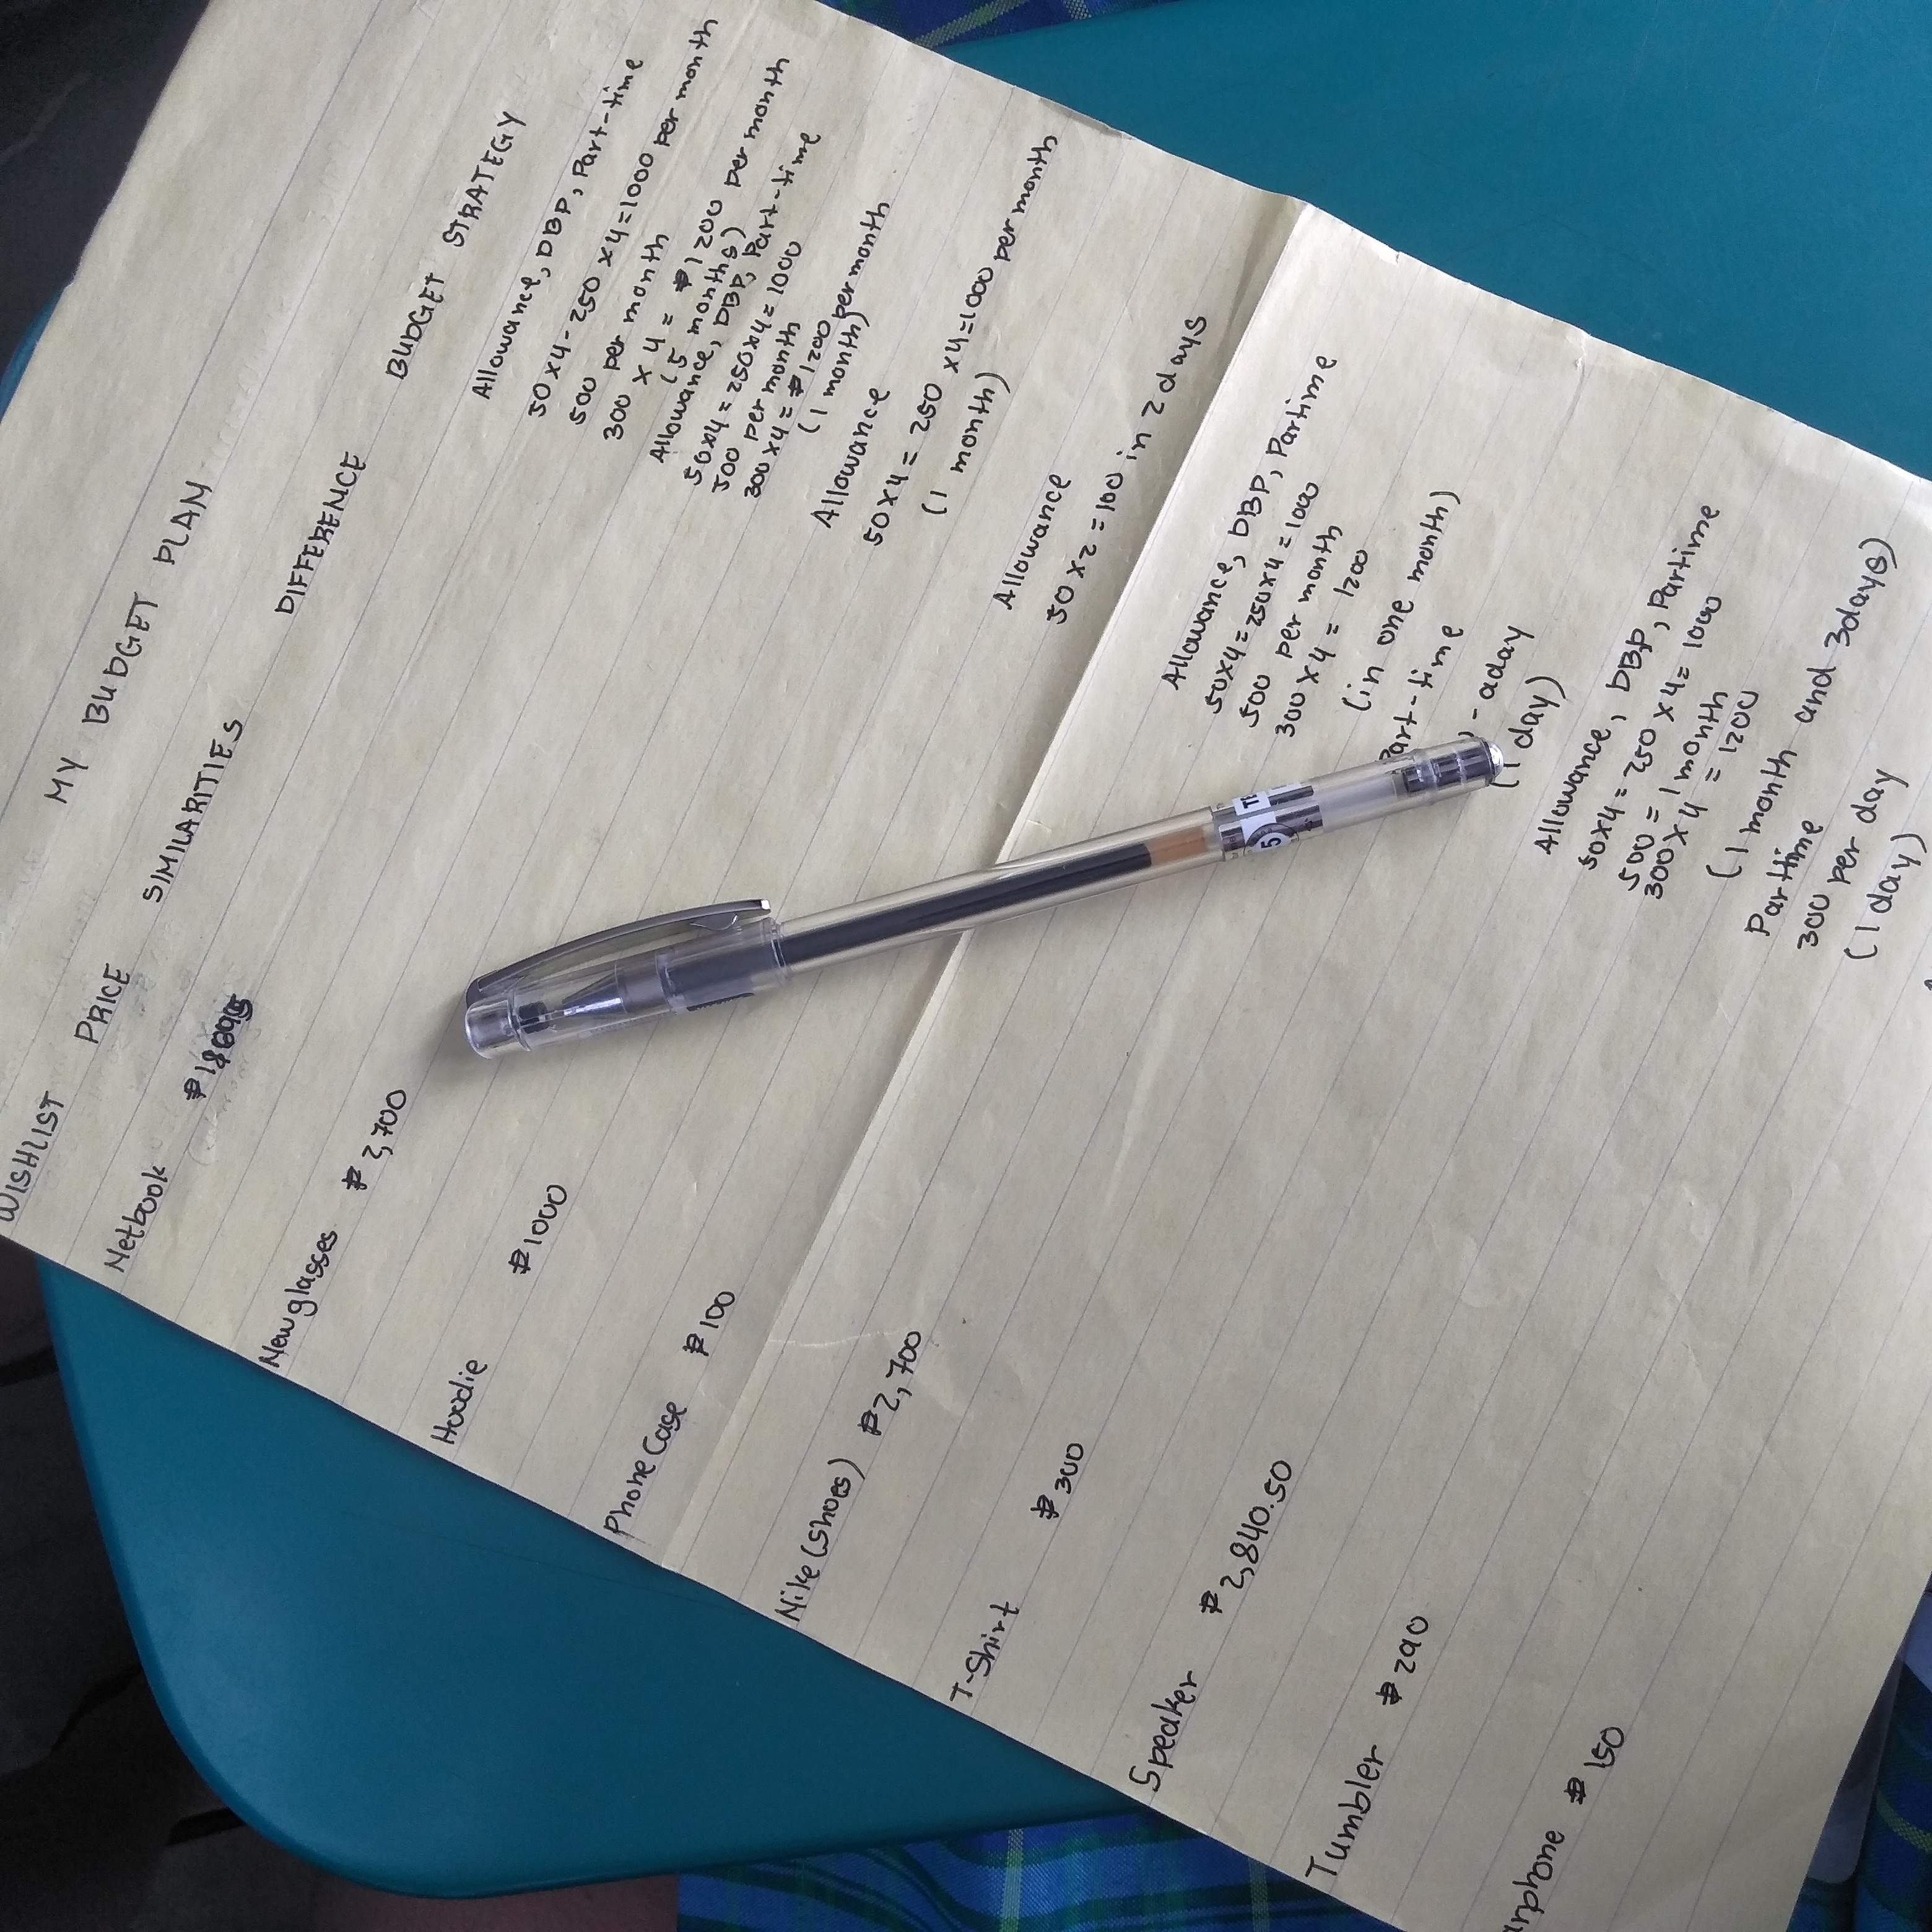 MY BUDGET PLAN
WISHLIST PRICE SIMILARITIES DIFFERENCE BUDGET STRATEGY
Netbook
Allowance, DBP, Part-time
50 x 4 - 250 x 4 = 1000 per month
500 per month
300 x 4 = ₱1200 per month
(5 months)
New glasses ₱2,700
Allowance, DBP, Part-time
50x4 = 250x4 = 1000
500 per month
300x4 = ₱1200 per month
(1 month)
Hoodie ₱1000
Allowance
50 x 4 = 250 x 4 = 1000 per month
(1 month)
Phone Case ₱100
Allowance
50 x 2 = 100 in 2 days
Nike (Shoes) ₱2,700
Allowance, DBP, Partime
50x4 = 250x4 = 1000
500 per month
300 x 4 = 1200
(in one month)
T-Shirt ₱300
Part-time
- a day
(1 day)
Speaker ₱2,840.50
Allowance, DBP, Partime
50x4 = 250 x 4 = 1000
500 = 1 month
300 x 4 = 1200
(1 month and 3 days)
Tumbler ₱290
Partime
300 per day
(1 day)
₱150